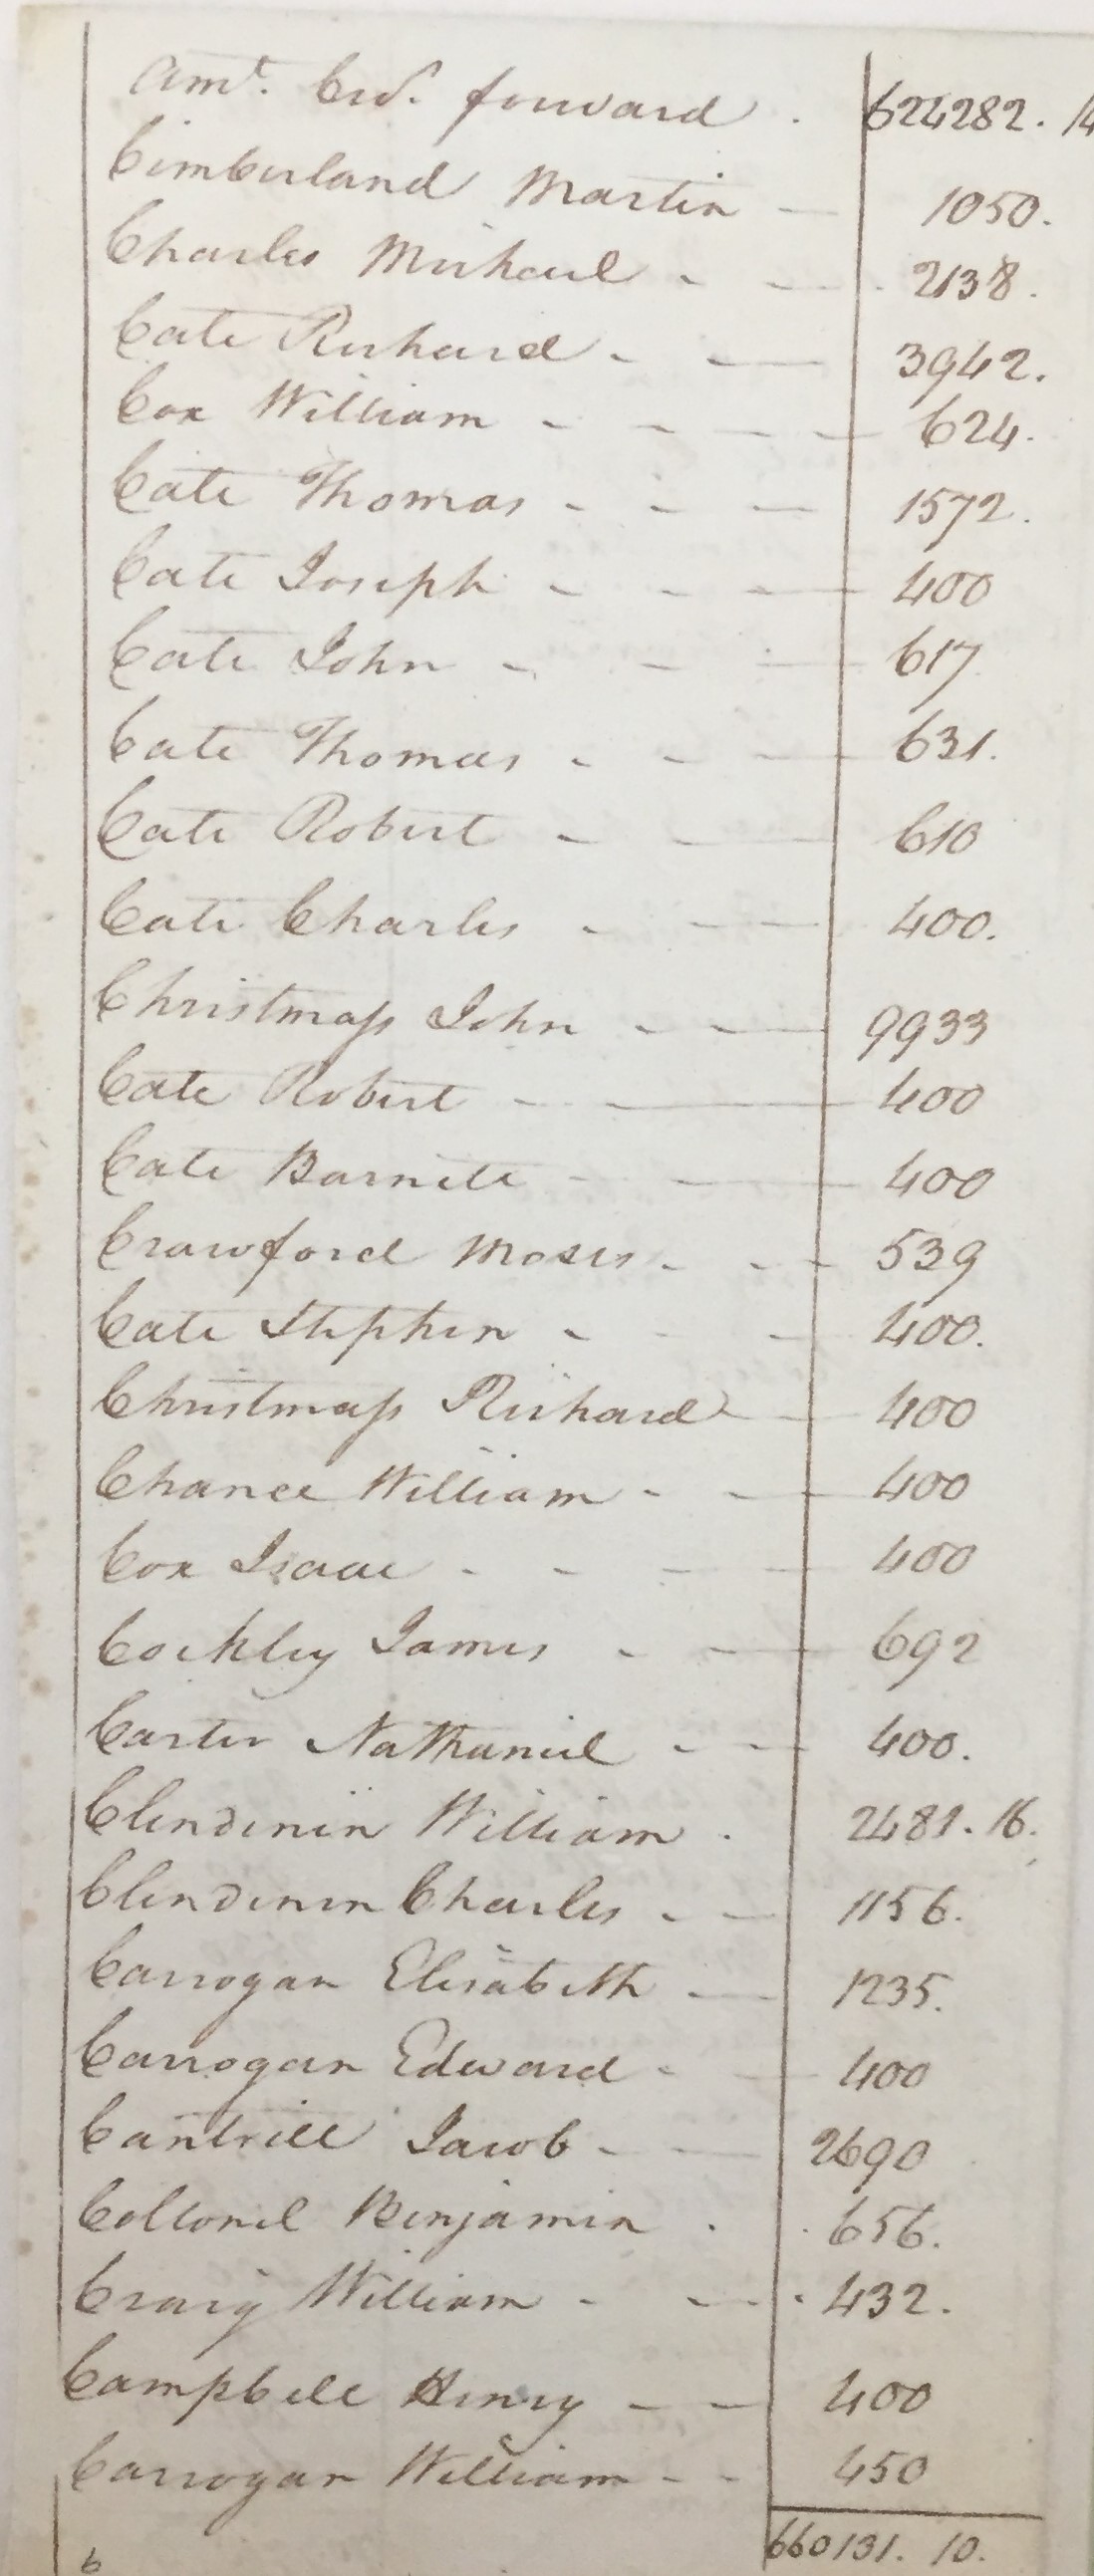 Amt. Crd. forward . 624282. 14
Cimberland Martin — 1050.
Charles Michael - — 2138.
Cate Richard - — 3942.
Cox William - - - — 624.
Cate Thomas - - — 1572.
Cate Joseph - - — 400
Cate John - - — 617
Cate Thomas - - — 631.
Cate Robert - — 610
Cate Charles - — 400.
Christmass John - — 9933
Cate Robert - — 400
Cate Barnett - — 400
Crawford Moses - - - 539
Cate Stephen - - — 400.
Christmass Richard - — 400
Chance William - — 400
Cox Isaac - - - — 400
Cockley James - — 692
Carter Nathaniel - — 400.
Clendinin William . 2481. 16.
Clendinin Charles - — 1156.
Carrogan Elisabeth — 1235.
Carrogan Edward - — 400
Cantrill Jacob - — 2690
Colloned Benjamin . . 656.
Craig William - - - . 432.
Campbell Henry — — 400
Carrogan William - - 450
660131. 10.
6